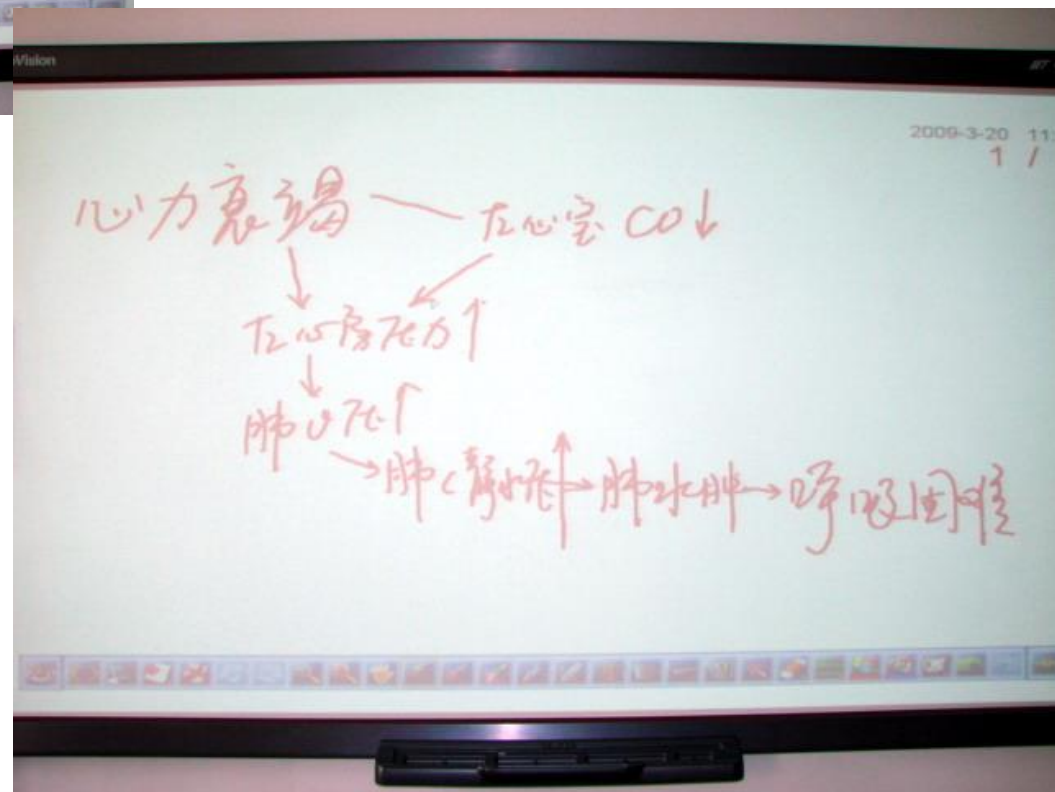 Vision
2009-3-20 11:
1 /
心力衰竭 — 左心室 CO↓
左心房压力↑
肺V压↑
→肺C静水压↑→肺水肿→呼吸困难